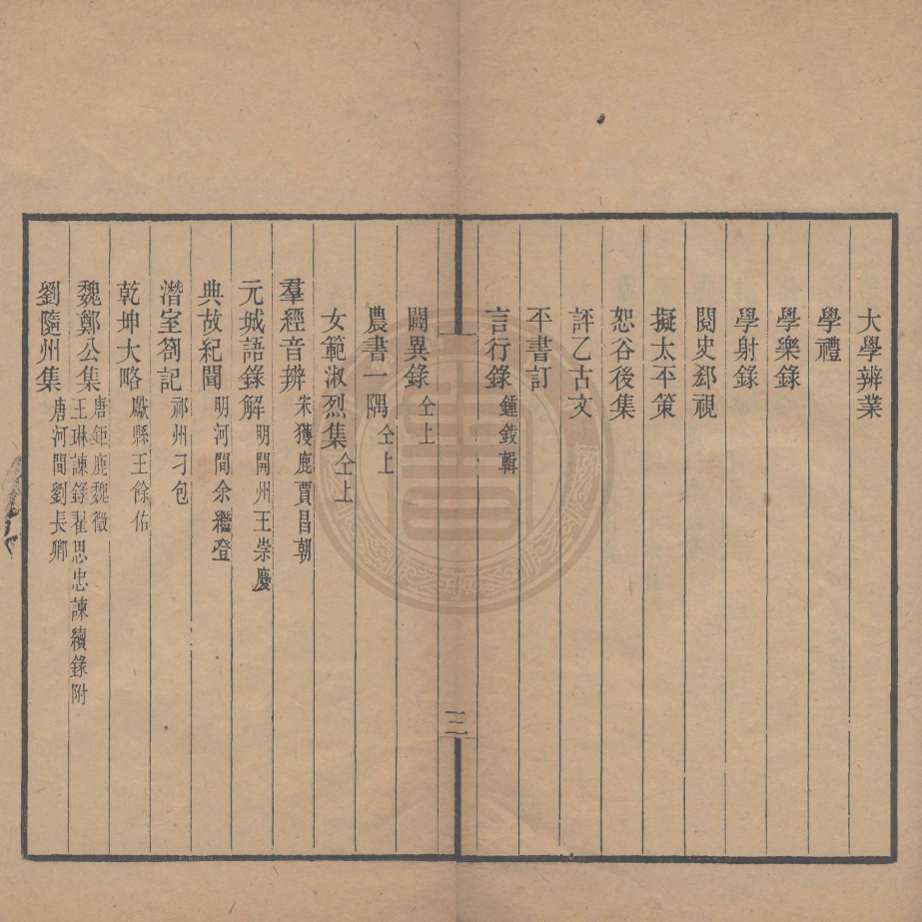 大學辨業
學禮
學樂錄
學射錄
閱史郄視
擬太平策
恕谷後集
評乙古文
平書訂
言行錄 鍾錂輯
三
闢異錄 仝上
農書一隅 仝上
女範淑烈集 仝上
羣經音辨 宋獲鹿賈昌朝
元城語錄解 明開州王崇慶
典故紀聞 明河間余繼登
潛室劄記 祁州刁包
乾坤大略 獻縣王餘佑
魏鄭公集 唐鉅鹿魏徵
王琳諫錄翟思忠諫續錄附
劉隨州集 唐河間劉長卿